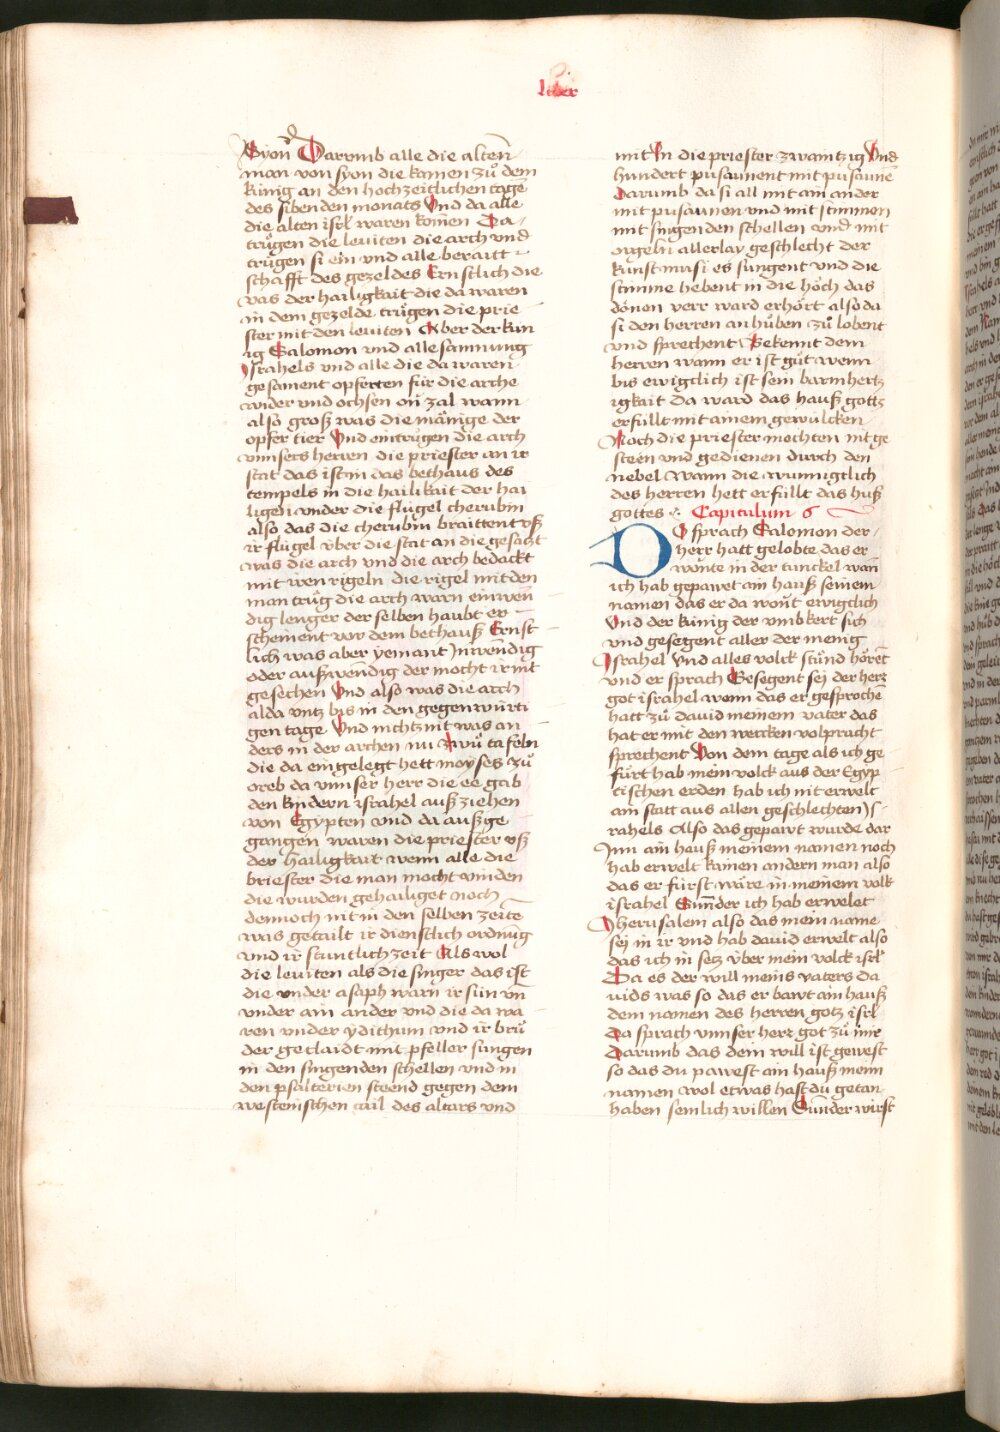 liber
Syon Darumb alle die alten
man von syon die kamen zů dem
künig an den hochzeitlichen tage
des sibenden monats Vnd da alle
die alten isrl waren komen Da
trůgen die leuiten die arch vnd
trůgen si ein vnd alle beraitt
schafft des gezeldes Ernstlich die
vas der hailigkait die da waren
in dem gezelde trůgen die prie
ster mit den leuiten Aber der kün
ig Salomon vnd alle samnung
Israhels vnd alle die da waren
gesament opferten für die arche
wider vnd ochsen on zal wann
also groß was die mänige der
opfer tier Vnd eintrůgen die arch
vnnsers herren die priester an ir
stat das ist in das bethaus des
tempels in die hailikait der hai
ligen vnder die flügel cherubin
also das die cherubin braittent vß
ir flügel vber die stat an die gesatzt
was die arch vnd die arch bedackt
mit iren rigeln die rigel mit den
man trůg die arch warn ein wen
dig lenger der selben haubt er
scheinent vor dem bethauß Ernst
lich was aber yemant Inwendig
oder außwendig der mocht ir nit
gesechen Vnd also was die arch
alda vntz bis in den gegenwürti
gen tage Vnd nichtz nit was an
ders in der archen nu zwů tafeln
die da eingelegt hett moyses zů
oreb da vnnser herr die ee gab
den kindern israhel auß ziehen
von Egypten vnd da außge
gangen waren die priester vß
der hailigkait wenn alle die
briester die man mocht vinden
die wurden gehailiget noch
dennoch nit in den selben zeite
was getailt ir dienstlich ordnüg
vnd ir stuntlich zeit Als wol
die leuiten als die singer das ist
die vnder asaph warn ir sün vn
vnder ain ander vnd die da wa
ren vnder ydithum vnd ir brů
der geclaidt mit pfeller sungen
in den singenden schellen vnd in
den psalterien steend gegen dem
westenischen tail des altars vnd
mit In die priester zwaintzig Vnd
hundert pusaunent mit pusaune
Darumb da si all mit ain ander
mit pusaunen vnd mit stimmen
mit singen den schellen vnd mit
orgeln allerlay geschlecht der
kunst musi es sungent vnd die
stimme hebent in die höch das
dönen verr ward erhört also da
si den herren an hůben zů lobent
vnd sprechent Bekennt dem
herren wann er ist gůt wenn
bis ewigclich ist sein barmhertz
igkait Da ward das hauß gottz
erfüllt mit ainem gewülcken
Noch die priester mochten nit ge
steen vnd gedienen durch den
nebel Wann die wunnigklich
des herren hett erfüllt das huß
gottes Capitulum 6
DO sprach Salomon der
herr hatt gelobte das er
wonte in der tunckel wan
ich hab gepawet ain hauß seinem
namen das er da wont ewigclich
Vnd der künig der vmbkert sich
vnd gesegent aller der menig
Israhel Vnd alles volck stůnd hören
vnd er sprach Gesegent sej der herr
got israhel wenn das er gesprochen
hatt zů dauid meinem vater das
hat er mit den wercken volpracht
sprechent Von dem tage als ich ge
fürt hab mein volck aus der Egyp
tischen erden hab ich nit erwelt
ain statt aus allen geschlechten Is
rahels Also das gepawt wurde dar
Inn ain hauß meinem namen noch
hab erwelt kainen andern man also
das er fürst wäre in meinem volk
israhel Sunder ich hab erwelet
Jherusalem also das mein name
sej in ir vnd hab dauid erwelt also
das ich in setz vber mein volck isrl
Da es der will meins vaters da
uids was so das er bawt ain hauß
dem namen des herren gotz isrl
Da sprach vnnser herr got zů mir
Darumb das dein will ist gewest
so das du pawest ain hauß meim
namen wol etwas hast du getan
haben semlich willen Sunder wirst